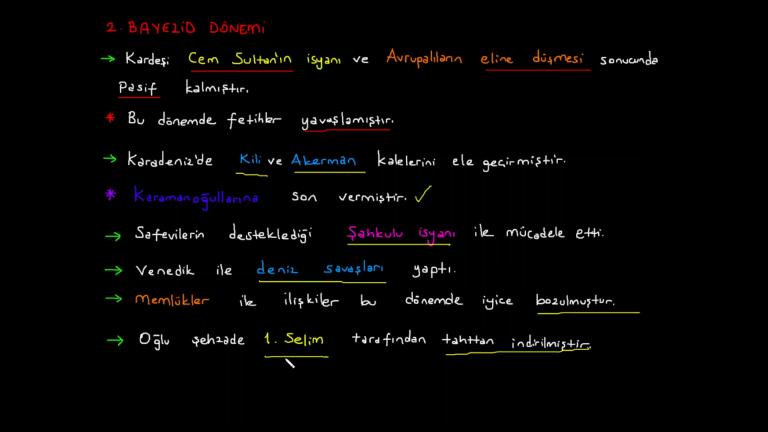 2. BAYEZİD DÖNEMİ
→ Kardeşi Cem Sultan'ın isyanı ve Avrupalıların eline düşmesi sonucunda
pasif kalmıştır.
* Bu dönemde fetihler yavaşlamıştır.
→ Karadeniz'de Kili ve Akerman kalelerini ele geçirmiştir.
* Karamanoğullarına son vermiştir. ✓
→ Safevilerin desteklediği Şahkulu isyanı ile mücadele etti.
→ Venedik ile deniz savaşları yaptı.
→ Memlükler ile ilişkiler bu dönemde iyice bozulmuştur.
→ Oğlu şehzade 1. Selim tarafından tahttan indirilmiştir.